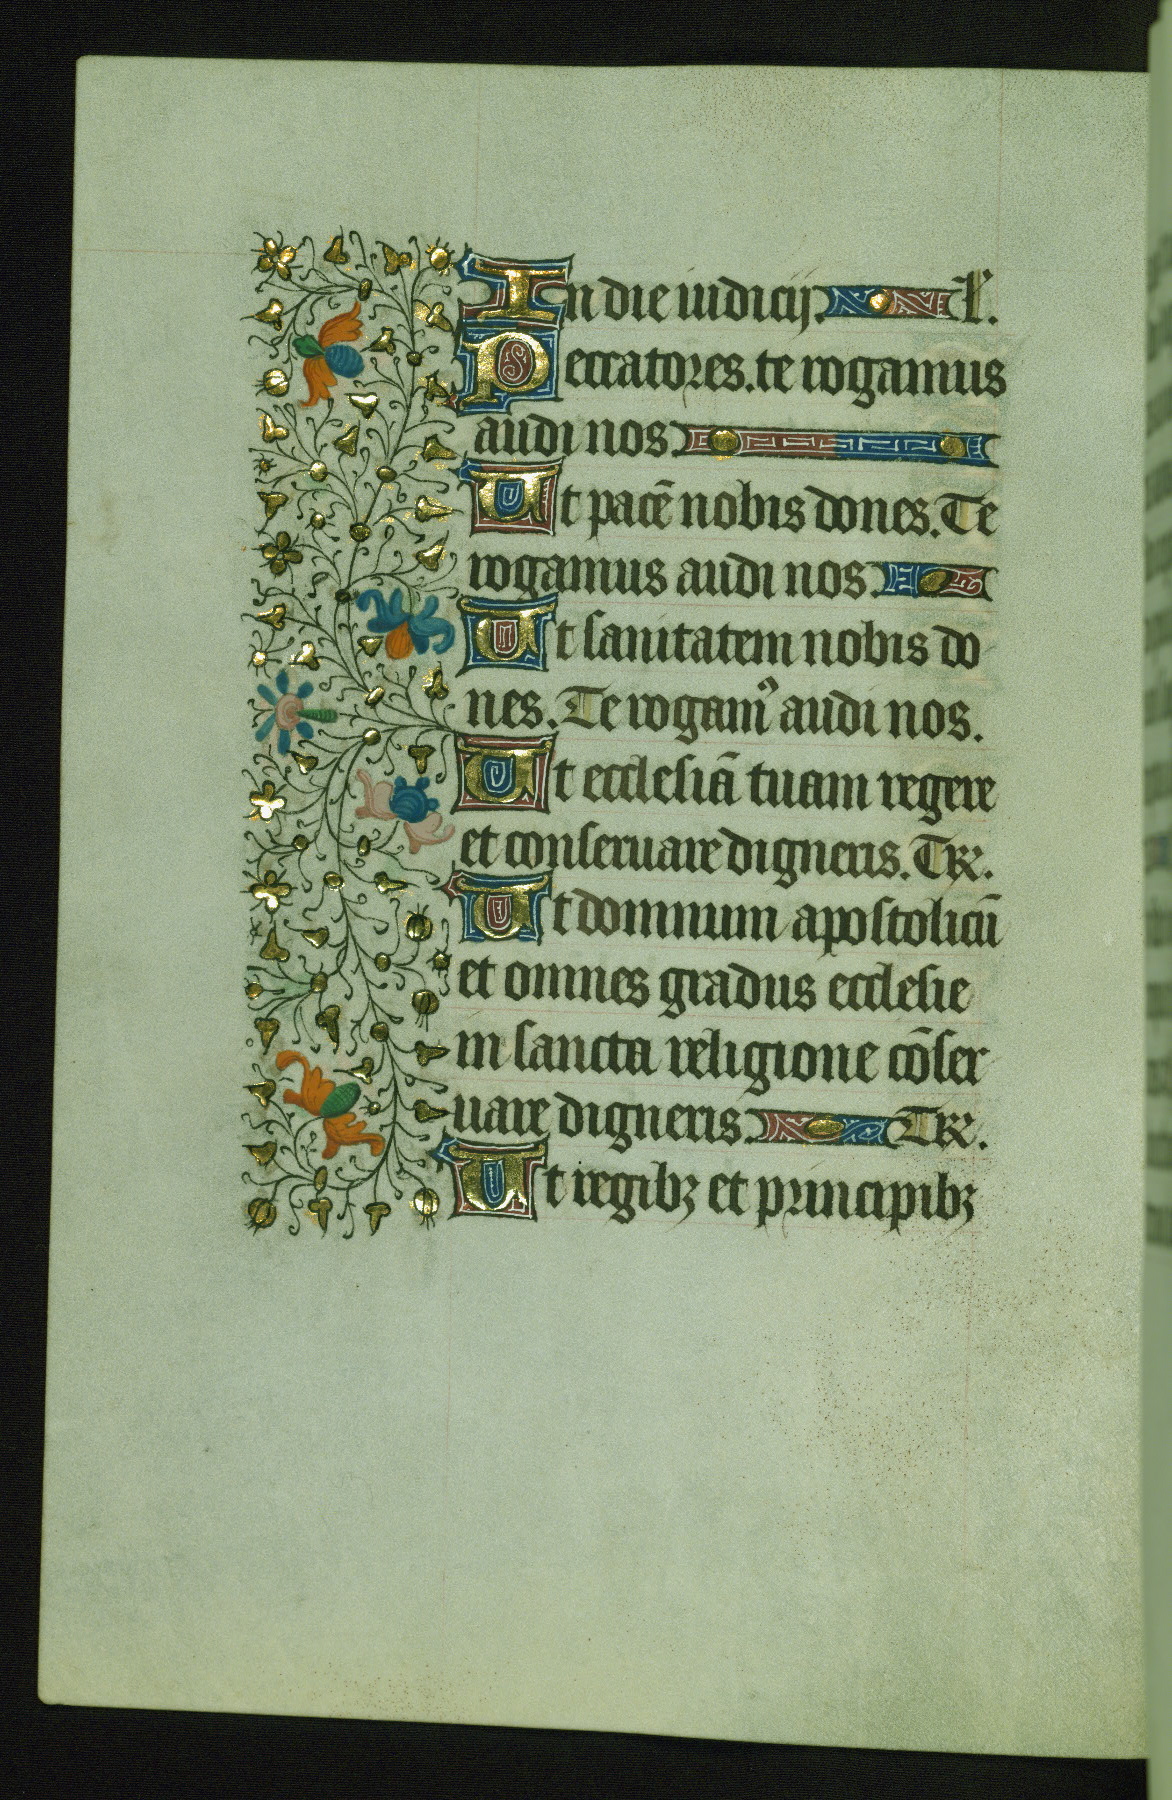 In die iudicij. L.
Peccatores. te rogamus
audi nos.
Ut pacē nobis dones. Te
rogamus audi nos.
Ut sanitatem nobis do
nes. Te rogamꝰ audi nos.
Ut ecclesiā tuam regere
et conseruare digneris. TR.
Ut domnum apostolicū
et omnes gradus ecclesie
in sancta religione cōser
uare digneris. TR.
Ut regibꝫ et principibꝫ